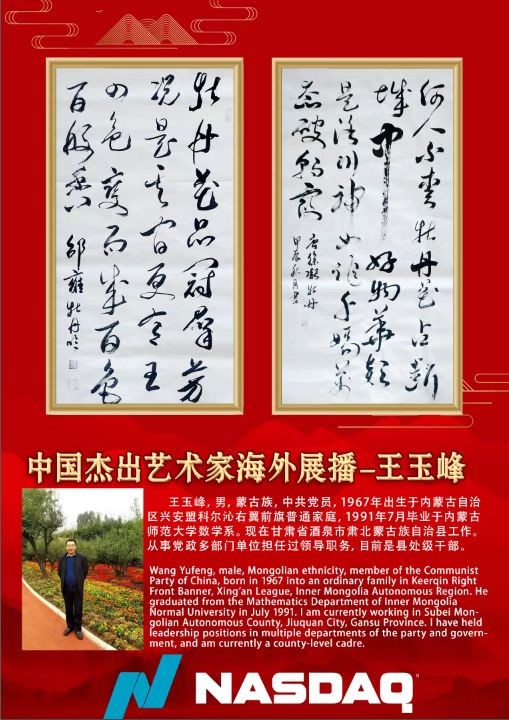 牡丹花品冠羣芳
况是其间更有王
四色变而成百色
百般香 邵雍牡丹吟
何人不爱牡丹花占断
城中好物华疑
是洛川神女作千娇万
态破朝霞
唐徐凝牡丹
中国杰出艺术家海外展播-王玉峰
王玉峰，男，蒙古族，中共党员，1967年出生于内蒙古自治
区兴安盟科尔沁右翼前旗普通家庭，1991年7月毕业于内蒙古
师范大学数学系。现在甘肃省酒泉市肃北蒙古族自治县工作。
从事党政多部门单位担任过领导职务，目前是县处级干部。
Wang Yufeng, male, Mongolian ethnicity, member of the Communist
Party of China, born in 1967 into an ordinary family in Keerqin Right
Front Banner, Xing'an League, Inner Mongolia Autonomous Region. He
graduated from the Mathematics Department of Inner Mongolia
Normal University in July 1991. I am currently working in Subei Mon-
golian Autonomous County, Jiuquan City, Gansu Province. I have held
leadership positions in multiple departments of the party and govern-
ment, and am currently a county-level cadre.
NASDAQ